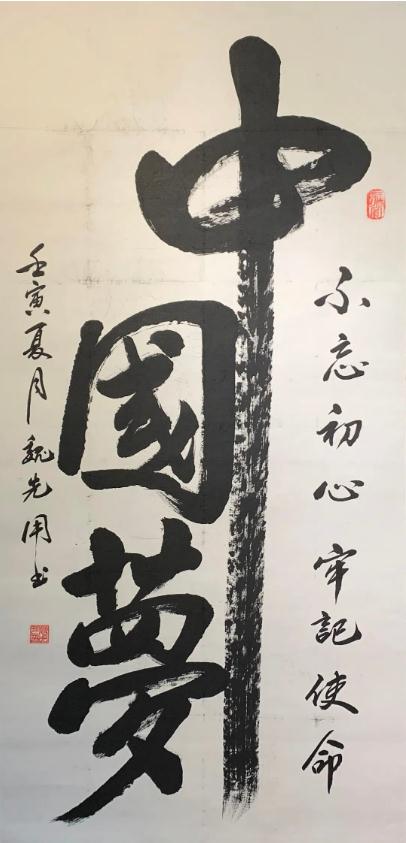 不忘初心 牢記使命
中國夢
壬寅夏月 魏先周书